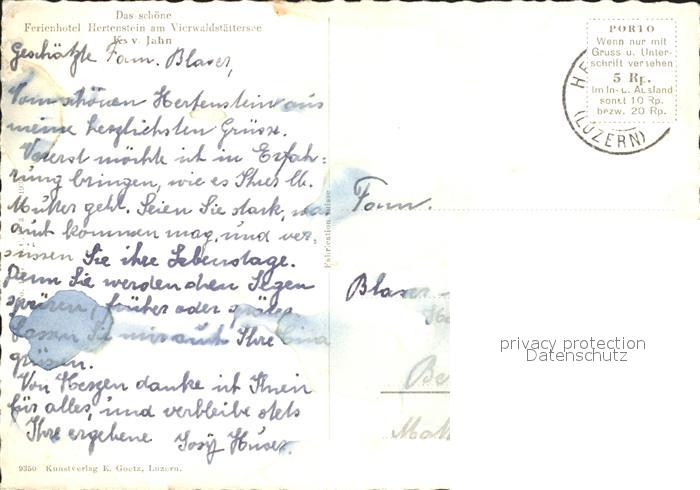 Das schöne
Ferienhotel Hertenstein am Vierwaldstättersee
K. v. Jahn
Geschätzte Fam. Blaser,
Vom schönen Hertenstein aus
meine herzlichsten Grüsse.
Vorerst möchte ich in Erfah-
rung bringen, wie es Ihrer lb.
Mutter geht. Seien Sie stark, was
auch kommen mag, und ver-
süssen Sie ihre Lebenstage.
Denn Sie werden den Segen
spüren, früher oder später.
Lassen Sie mir auch Ihre
grüssen.
Von Herzen danke ich Ihnen
für alles, und verbleibe stets
Ihre ergebene Josy Huser.
9350 Kunstverlag E. Goetz, Luzern.
Fabrication Suisse
PORTO
Wenn nur mit
Gruss u. Unter-
schrift versehen
5 Rp.
Im In- u. Ausland
sonst 10 Rp.
bezw. 20 Rp.
HE
(LUZERN)
Fam.
Blaser
privacy protection
Datenschutz